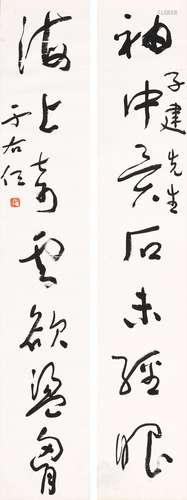 子建先生
袖中異石未經眼
海上奇雲欲盪胷
于右任